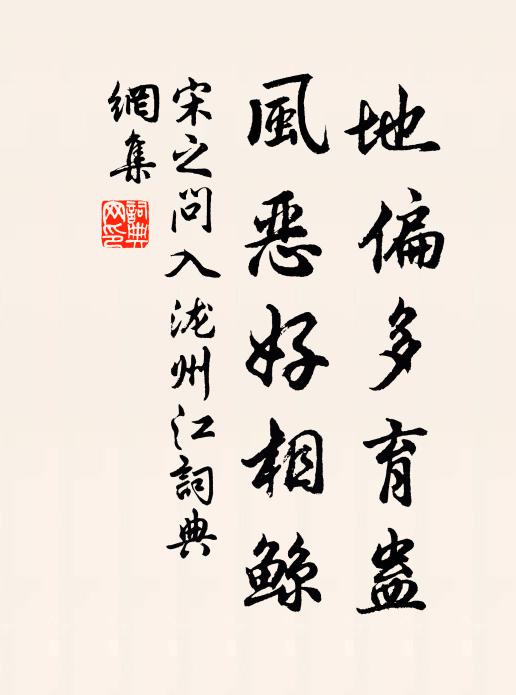 地偏多育蛊
風恶好相鲸
宋之问入泷州江詞典
網集
詞典網印